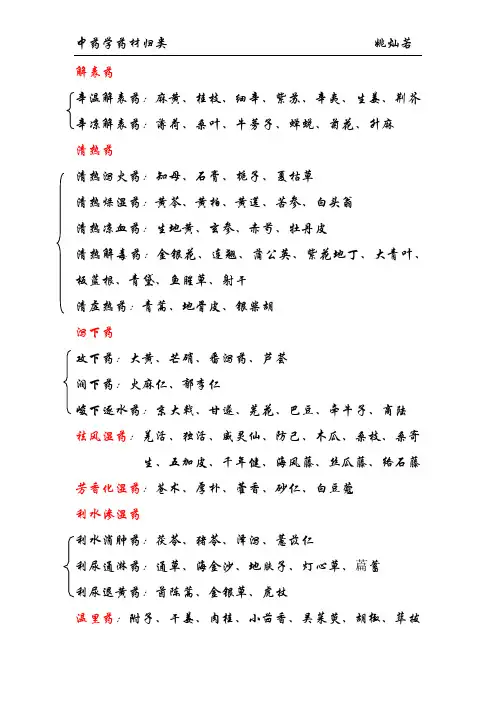 中药学药材归类 姚灿若
解表药
辛温解表药：麻黄、桂枝、细辛、紫苏、辛夷、生姜、荆芥
辛凉解表药：薄荷、桑叶、牛蒡子、蝉蜕、菊花、升麻
清热药
清热泻火药：知母、石膏、栀子、夏枯草
清热燥湿药：黄芩、黄柏、黄莲、苦参、白头翁
清热凉血药：生地黄、玄参、赤芍、牡丹皮
清热解毒药：金银花、连翘、蒲公英、紫花地丁、大青叶、
板蓝根、青黛、鱼腥草、射干
清虚热药：青蒿、地骨皮、银柴胡
泻下药
攻下药：大黄、芒硝、番泻药、芦荟
润下药：火麻仁、郁李仁
峻下逐水药：京大戟、甘遂、芫花、巴豆、牵牛子、商陆
祛风湿药：羌活、独活、威灵仙、防己、木瓜、桑枝、桑寄
生、五加皮、千年健、海风藤、丝瓜藤、络石藤
芳香化湿药：苍术、厚朴、藿香、砂仁、白豆蔻
利水渗湿药
利水消肿药：茯苓、猪苓、泽泻、薏苡仁
利尿通淋药：通草、海金沙、地肤子、灯心草、萹蓄
利尿退黄药：茵陈蒿、金银草、虎杖
温里药：附子、干姜、肉桂、小茴香、吴茱萸、胡椒、荜拔